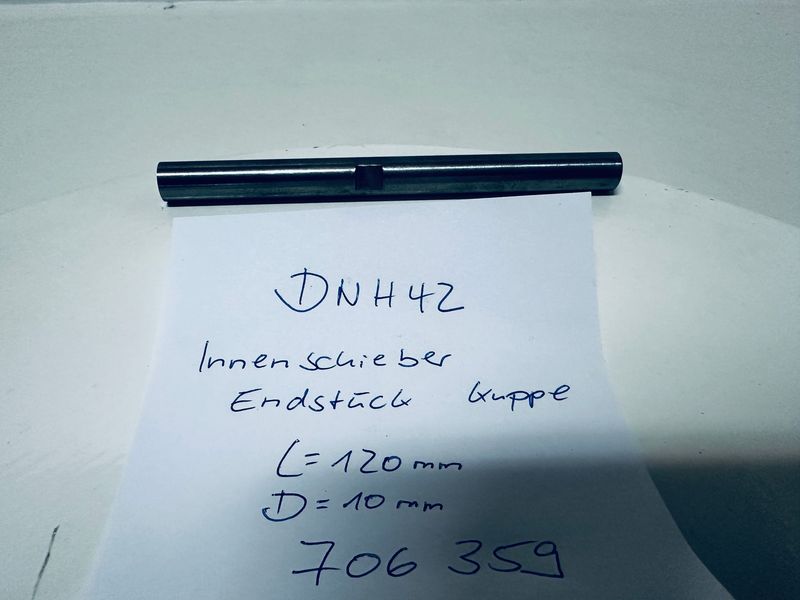 DNH42
Innenschieber
Endstück Kuppe
L=120mm
D=10mm
706 359